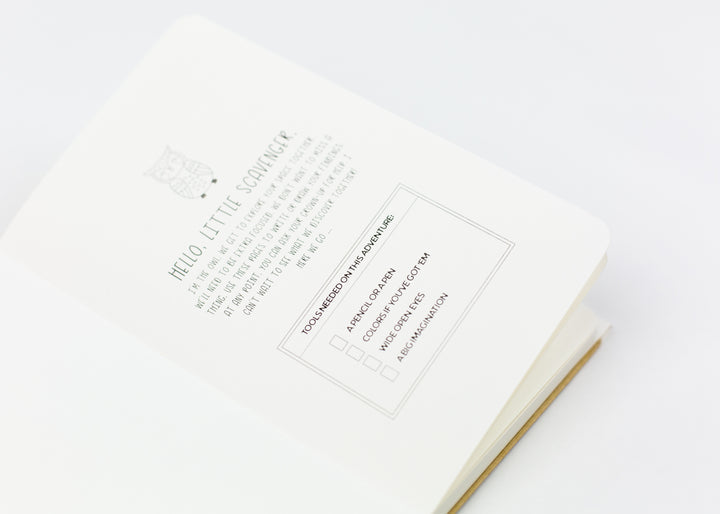 HELLO, LITTLE SCAVENGER,
I'M THE OWL WE GET TO EXPLORE YOUR SPACE TOGETHER.
WE'LL NEED TO BE EXTRA FOCUSED. WE DON'T WANT TO MISS A
THING, USE THESE PAGES TO WRITE OR DRAW YOUR FINDINGS.
AT ANY POINT, YOU CAN ASK YOUR GROWN-UP FOR HELP. I
CAN'T WAIT TO SEE WHAT WE DISCOVER TOGETHER!
HERE WE GO...
TOOLS NEEDED ON THIS ADVENTURE:
A PENCIL OR A PEN
COLORS IF YOU'VE GOT 'EM
WIDE OPEN EYES
A BIG IMAGINATION